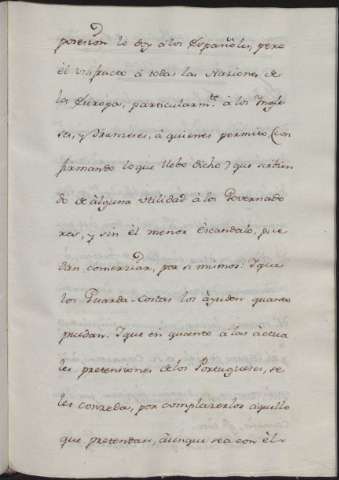 posesion lo doy álos Españoles, pero
él usufructo á todas las Naciones de
la Europa, particularm.te á los Ingle
ses, y Franceses, á quienes permito, (con
firmando lo que llebo dicho) que sirbien
do de álguna utilidad á los Governado
res, y sin él menor éscandalo, pue
dan comerciar, por si mismos: Y que
los Guarda-Costas los áyuden quanto
puedan. Y que en quanto á las áctua
les pretensiones delos Portugueses, se
les conceda, por complacerlos áquello
que pretendan, áunque sea con él-